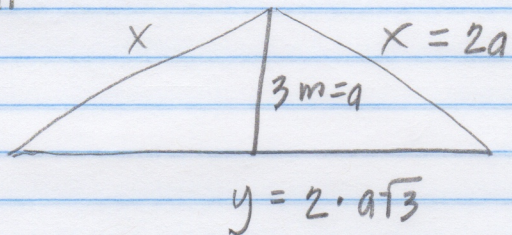 x
x = 2a
3 m = a
y = 2 · a√3